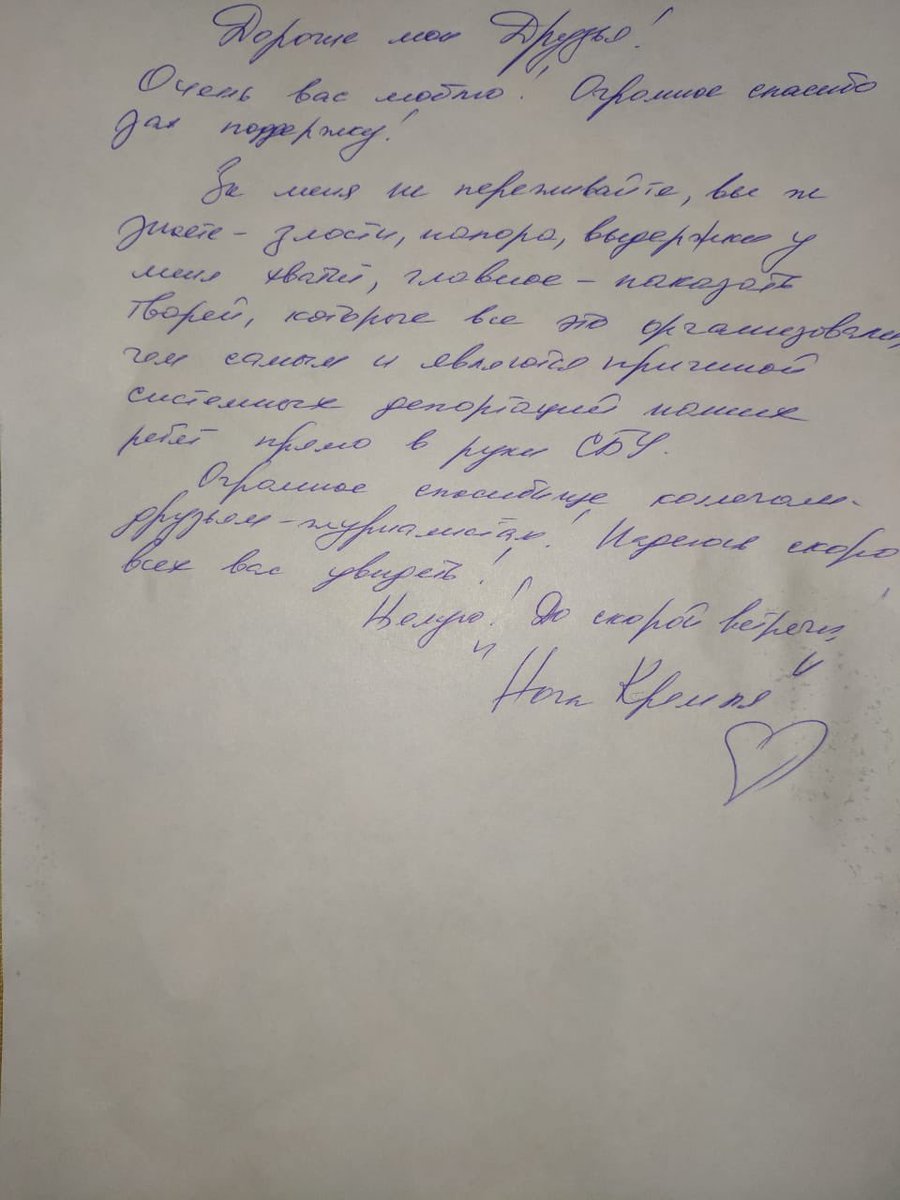 Дорогие мои Друзья!
Очень вас люблю! Огромное спасибо
за поддержку!
За меня не переживайте, вы ж
знаете - злости, напора, выдержки у
меня хватит, главное - наказать
тварей, которые все это организовали,
тем самым и являются причиной
системных депортаций наших
ребят прямо в руки СБУ.
Огромное спасибище коллегам-
друзьям-журналистам! Надеюсь скоро
всех вас увидеть!
Целую! До скорой встречи!
"Ночь Кремля"